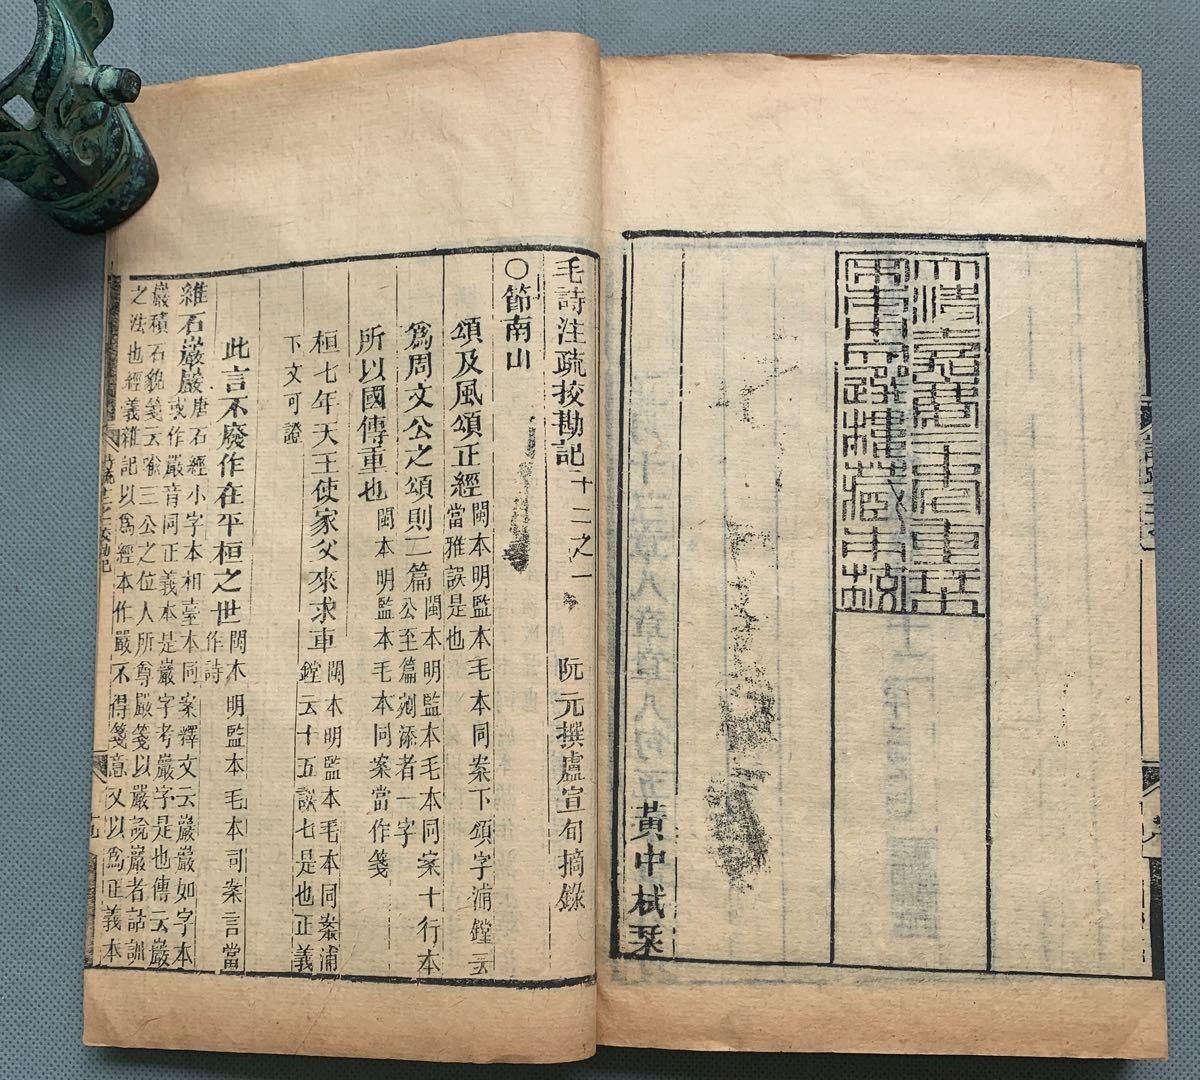 大清嘉慶二十年重栞
宋本用文選樓藏本校
黃中栻栞
毛詩注疏挍勘記十二之一　阮元撰盧宣旬摘錄
○節南山
頌及風頌正經閩本明監本毛本同案下頌字浦鏜云
當雅誤是也
爲周文公之頌則二篇閩本明監本毛本同案十行本
公至篇剜添者一字
所以國傳重也閩本明監本毛本同案當作箋
桓七年天王使家父來求車閩本明監本毛本同案浦
鏜云十五誤七是也正義
下文可證
此言不廢作在平桓之世閩本明監本毛本同案言當
作詩
維石巖巖唐石經小字本相臺本同案釋文云巖巖如字本
或作嚴音同正義本是巖字考嚴字是也傳云嚴
嚴積石貌箋云喻三公之位人所尊嚴箋以嚴說巖者詁訓
之法也經義雜記以爲經本作嚴不得箋意又以爲正義本